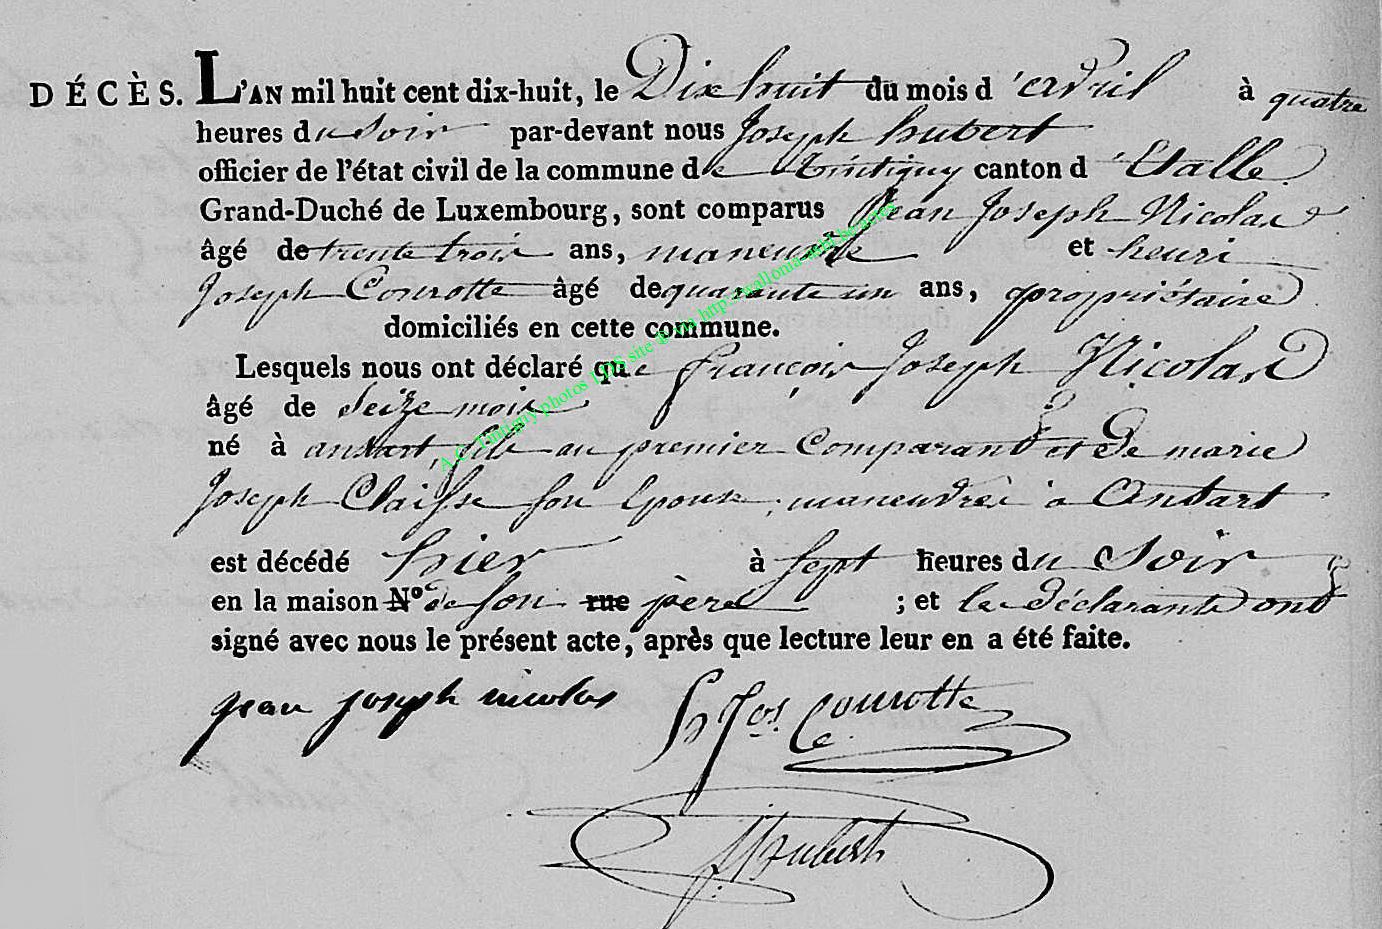 DÉCÈS. L'AN mil huit cent dix-huit, le Dix huit du mois d'avril à quatre
heures du soir par-devant nous Joseph hubert
officier de l'état civil de la commune de tintigny canton d'Etalle
Grand-Duché de Luxembourg, sont comparus Jean Joseph Nicolas
âgé de trente trois ans, maneuvre et henri
Joseph Courotte âgé de quarante un ans, propriétaire
domiciliés en cette commune.
Lesquels nous ont déclaré que françois Joseph Nicolas
âgé de seize mois
né à ansart, fils au premier Comparant et De marie
Joseph Claisse son Epouse, à Ansart
est décédé hier à sept heures du Soir
en la maison N.º de son rue père ; et les Déclarants ont
signé avec nous le présent acte, après que lecture leur en a été faite.
jean joseph nicolas H Jos Courotte
J hubert
A.C. Tintigny photos LDS site ® via http://wallonia-asbl.be/actes